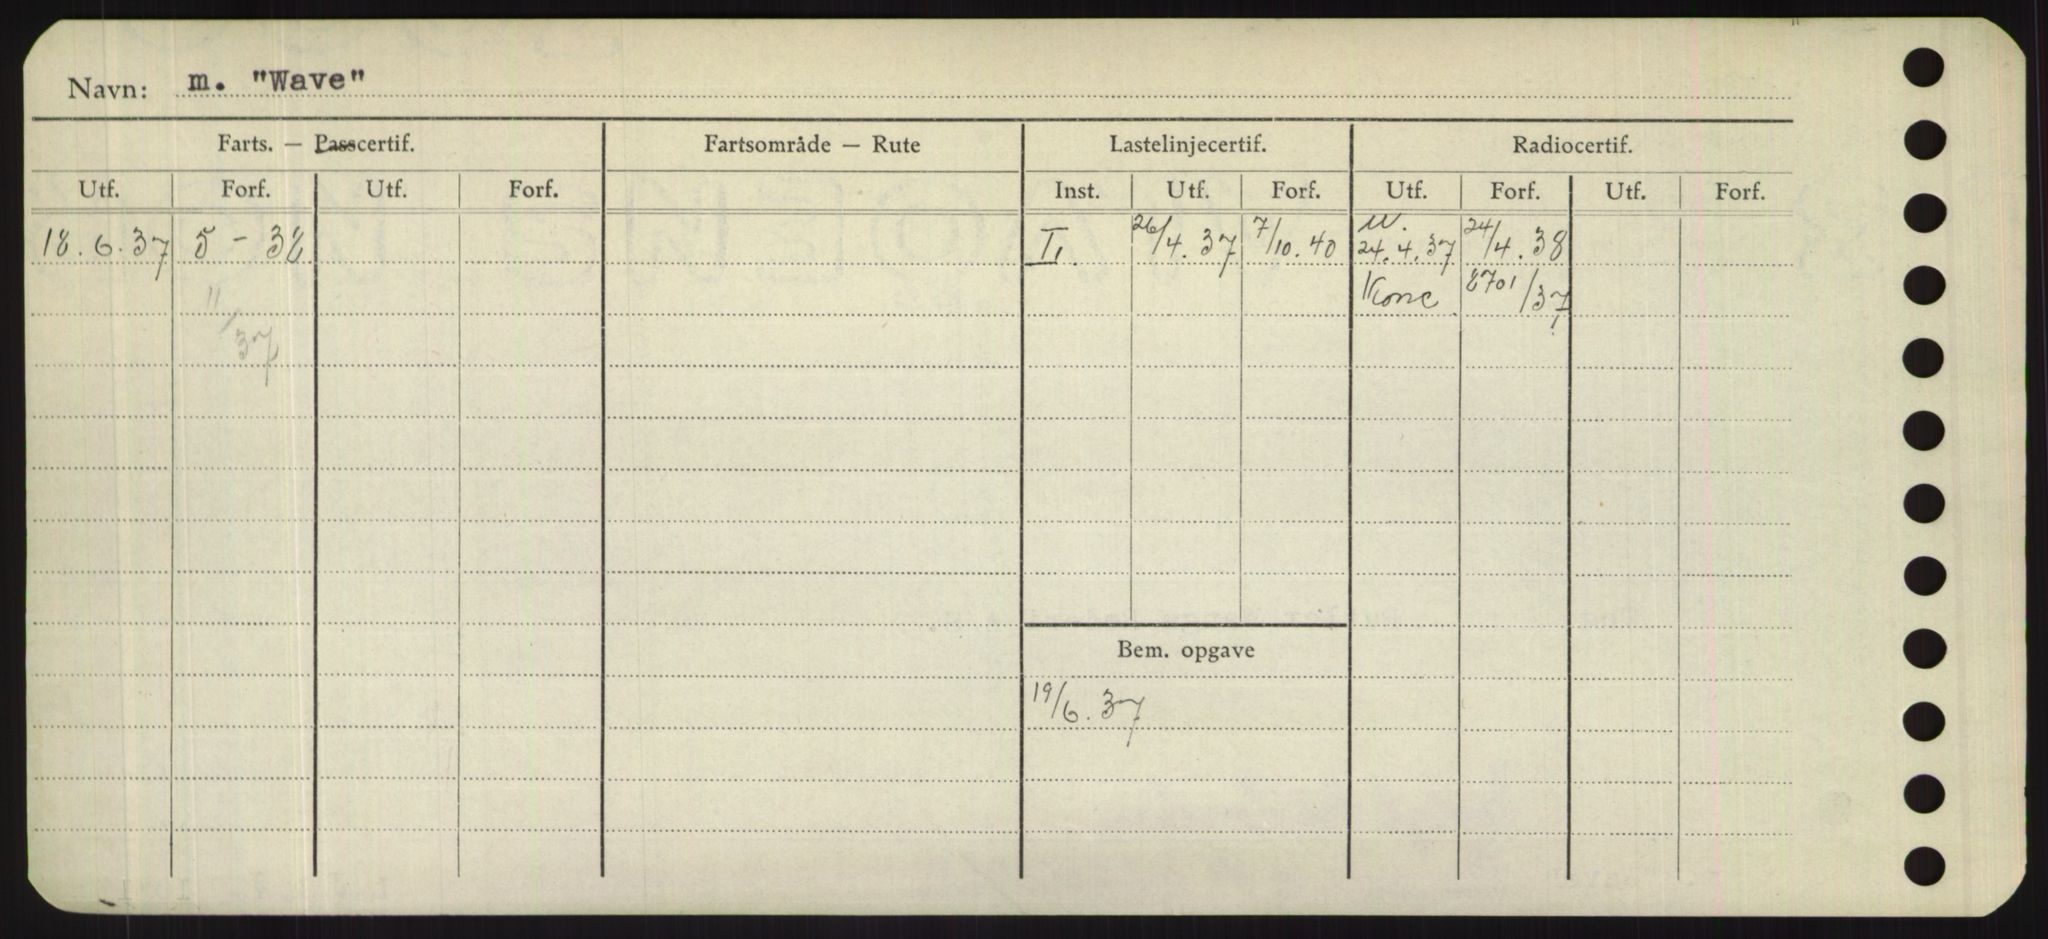 Navn: m. "Wave"
Farts. — Passcertif. Fartsområde — Rute Lastelinjecertif. Radiocertif.
Utf. Forf. Utf. Forf. Inst. Utf. Forf. Utf. Forf. Utf. Forf.
18.6.37 5 - 38 I, 26/4.37 7/10.40 24.4.37 24/4.38
Konc 8701/37
11/37
Bem. opgave
19/6.37